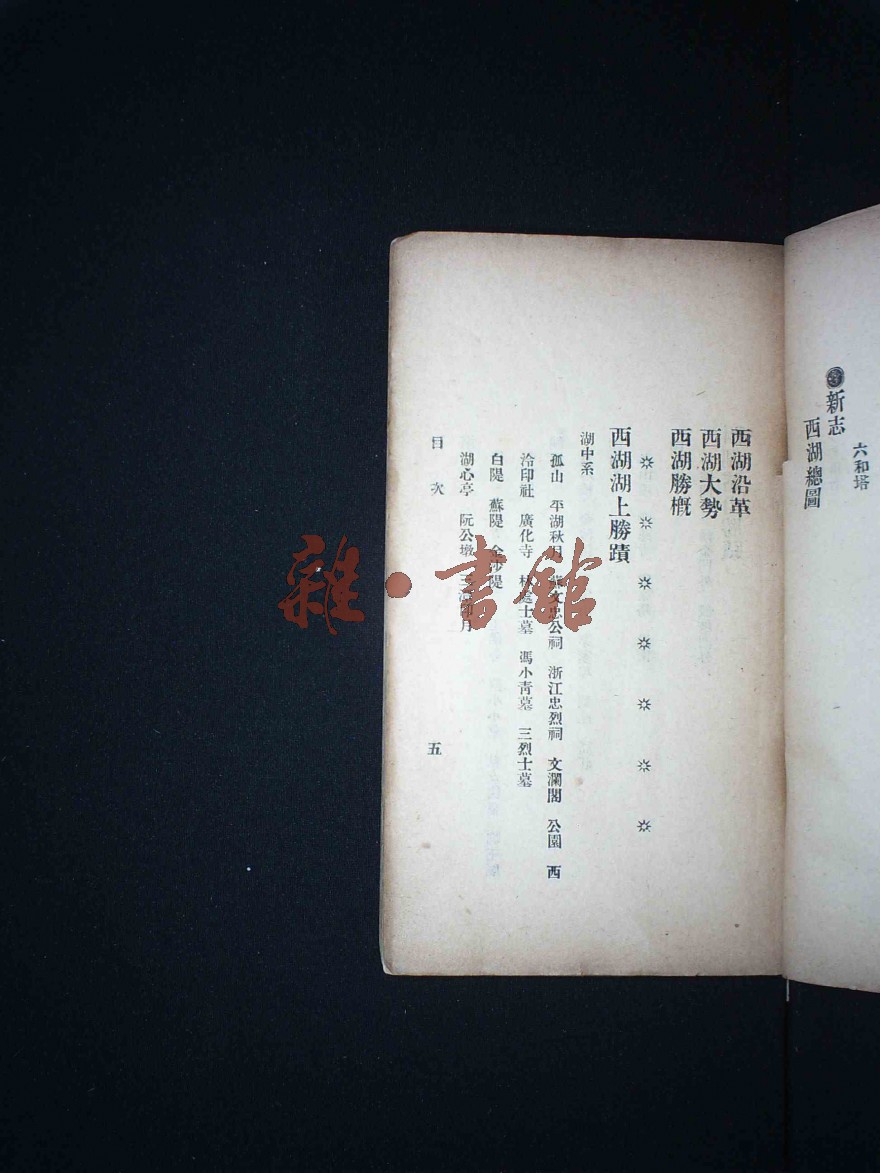 六和塔
新志
西湖總圖
西湖沿革
西湖大勢
西湖勝概
西湖湖上勝蹟
湖中系
孤山 平湖秋月 蘇文忠公祠 浙江忠烈祠 文瀾閣 公園 西
泠印社 廣化寺 林處士墓 馮小青墓 三烈士墓
白隄 蘇隄 金沙隄
湖心亭 阮公墩 三潭印月
目次 五
雜·書館